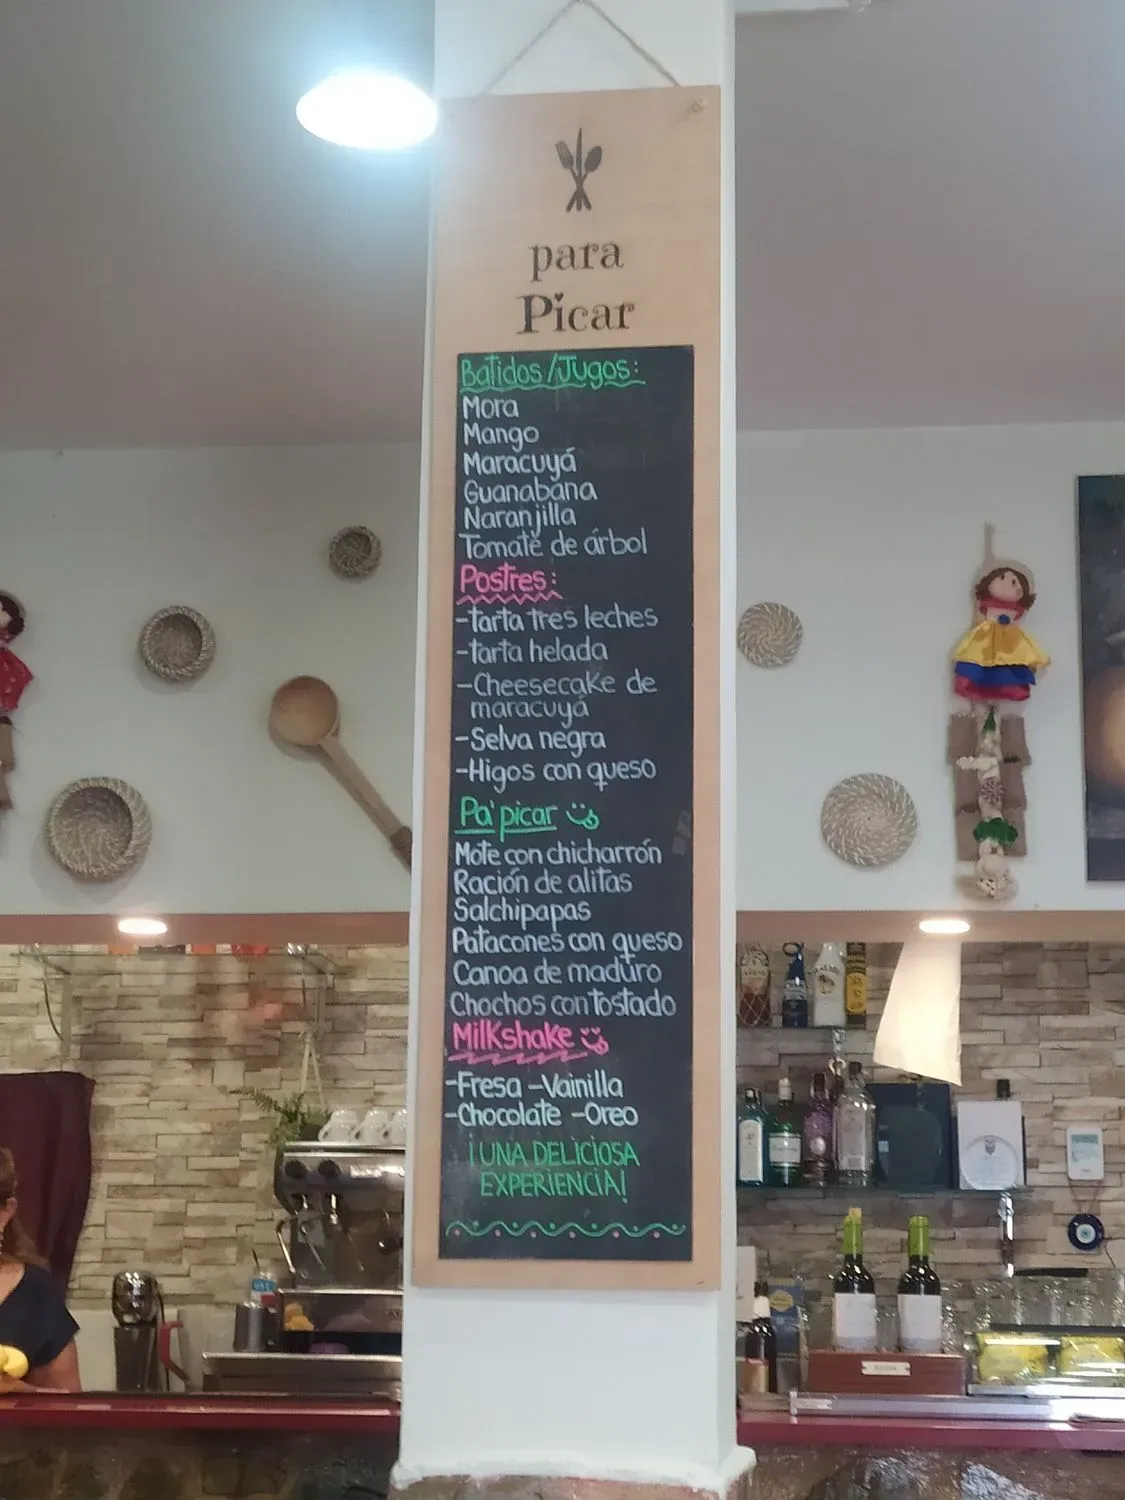 para
Picar
Batidos/Jugos:
Mora
Mango
Maracuyá
Guanabana
Naranjilla
Tomate de árbol
Postres:
-tarta tres leches
-tarta helada
-Cheesecake de
maracuyá
-Selva negra
-Higos con queso
Pa' picar
Mote con chicharrón
Ración de alitas
Salchipapas
Patacones con queso
Canoa de maduro
Chochos con tostado
Milkshake
-Fresa -Vainilla
-Chocolate -Oreo
¡UNA DELICIOSA
EXPERIENCIA!